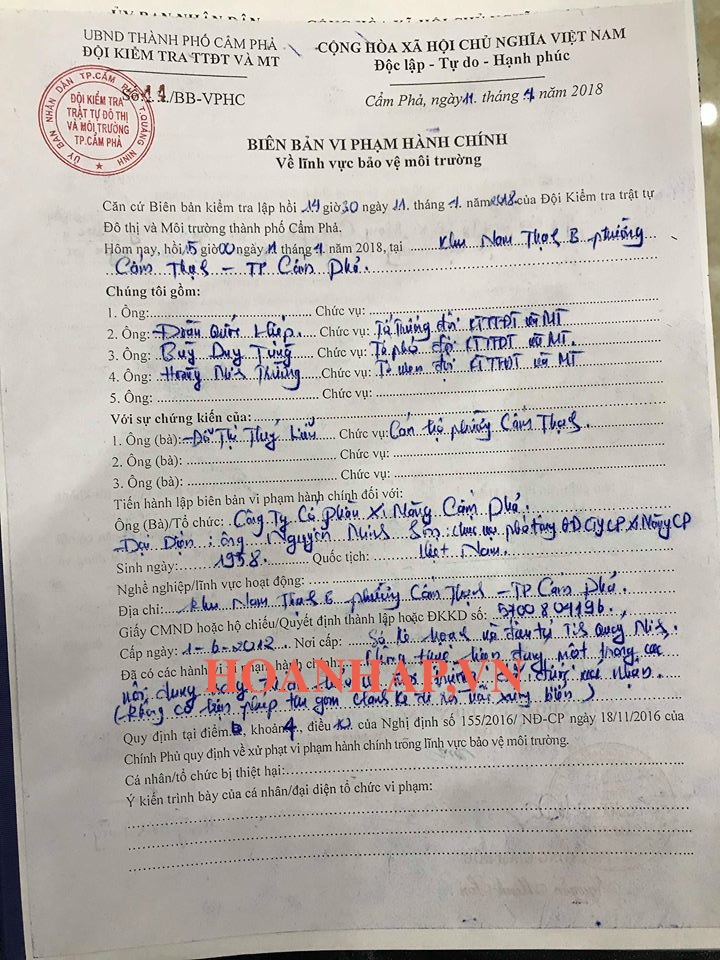 UBND THÀNH PHỐ CẨM PHẢ
ĐỘI KIỂM TRA TTĐT VÀ MT
CỘNG HÒA XÃ HỘI CHỦ NGHĨA VIỆT NAM
Độc lập - Tự do - Hạnh phúc
Số:11/BB-VPHC
ĐỘI KIỂM TRA
TRẬT TỰ ĐÔ THỊ
VÀ MÔI TRƯỜNG
TP.CẨM PHẢ
Cẩm Phả, ngày 11. tháng 4 năm 2018
BIÊN BẢN VI PHẠM HÀNH CHÍNH
Về lĩnh vực bảo vệ môi trường
Căn cứ Biên bản kiểm tra lập hồi 14 giờ 30 ngày 11. tháng 4. năm 2018 của Đội Kiểm tra trật tự
Đô thị và Môi trường thành phố Cẩm Phả.
Hôm nay, hồi 15 giờ 00 ngày 11 tháng 4 năm 2018, tại Khu Nam Thạch B phường
Cẩm Thạch - TP Cẩm Phả.
Chúng tôi gồm:
1. Ông: Chức vụ:
2. Ông: Đoàn Quốc Hiệp. Chức vụ: Tổ trưởng đội KTTTĐT và MT
3. Ông: Bùi Duy Tùng Chức vụ: Tổ phó đội KTTTĐT và MT.
4. Ông: Hoàng Chức vụ: Tổ viên đội KTTTĐT và MT
5. Ông: Chức vụ:
Với sự chứng kiến của:
1. Ông (bà): Đỗ Thị Thuý Liễu Chức vụ: Cán bộ phường Cẩm Thạch.
2. Ông (bà): Chức vụ:
3. Ông (bà): Chức vụ:
Tiến hành lập biên bản vi phạm hành chính đối với:
Ông (Bà)/Tổ chức: Công Ty Cổ Phần Xi Măng Cẩm Phả.
- Đại Diện: Ông Nguyễn Minh Sơn chức vụ CTY CP Xi Măng CP
Sinh ngày: 1958. Quốc tịch: Việt Nam.
Nghề nghiệp/lĩnh vực hoạt động:
Địa chỉ: Khu Nam Thạch B phường Cẩm Thạch - TP Cẩm Phả.
Giấy CMND hoặc hộ chiếu/Quyết định thành lập hoặc ĐKKD số: 5700804196.
Cấp ngày: 1-6-2012. Nơi cấp: Sở kế hoạch và đầu tư Tỉnh Quảng Ninh.
Đã có các hành vi vi phạm hành chính: thực hiện đúng một trong các
nội dung môi trường được xác nhận.
(Không có biện pháp thu gom để rơi vãi xuống biển)
HOANHAP.VN
Quy định tại điểm b, khoản 4, điều của Nghị định số 155/2016/ NĐ-CP ngày 18/11/2016 của
Chính Phủ quy định về xử phạt vi phạm hành chính trong lĩnh vực bảo vệ môi trường.
Cá nhân/tổ chức bị thiệt hại:
Ý kiến trình bày của cá nhân/đại diện tổ chức vi phạm: